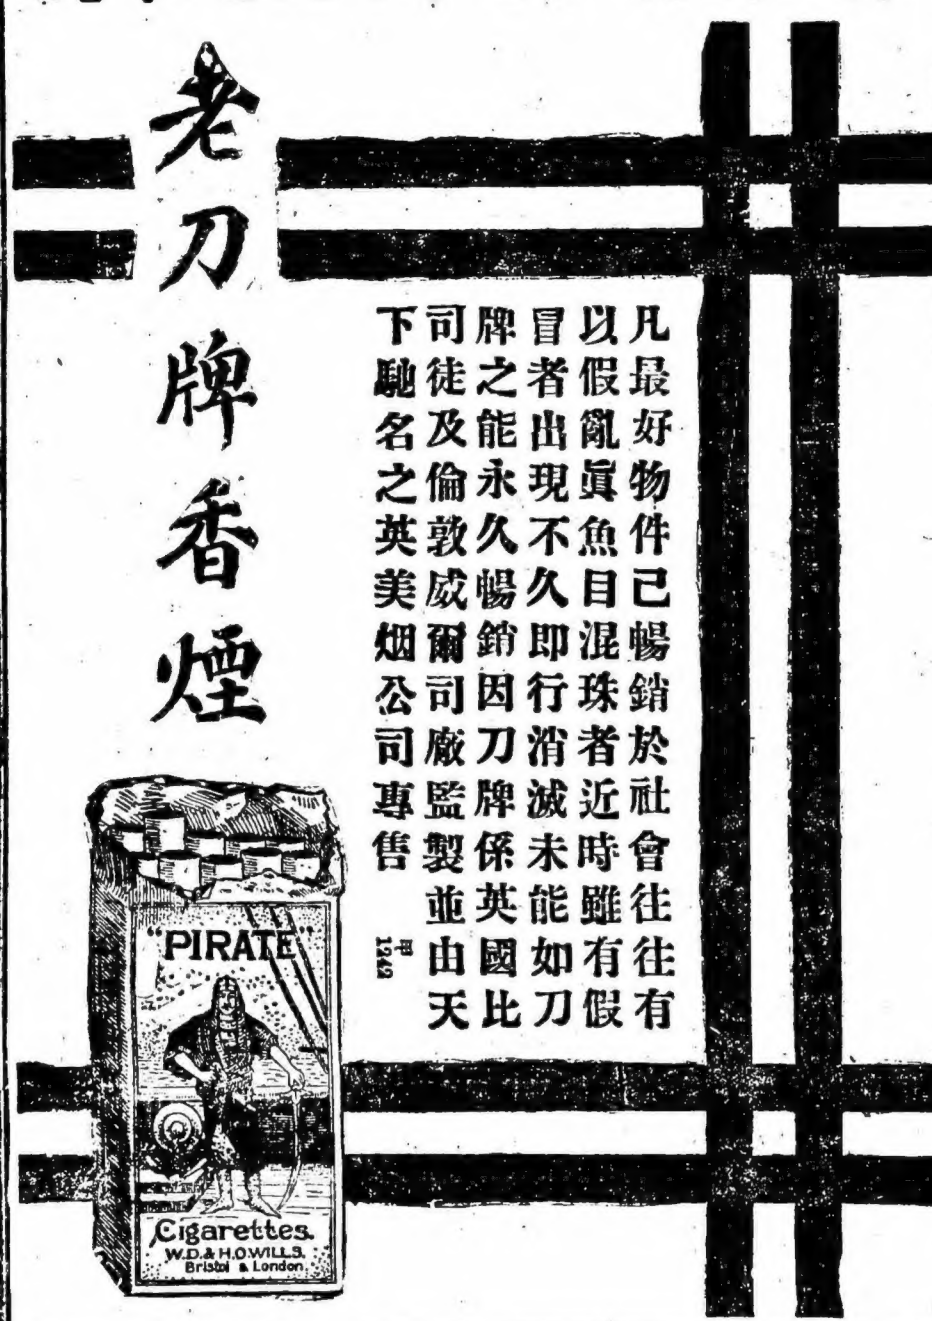 凡最好物件已暢銷於社會往往有
以假亂眞魚目混珠者近時雖有假
冒者出現不久即行消滅未能如刀
牌之能永久暢銷因刀牌係英國比
司徒及倫敦威爾司廠監製並由天
下馳名之英美烟公司專售
甲1242
老刀牌香煙
"PIRATE"
Cigarettes.
W.D.& H.O.WILLS.
Bristol & London